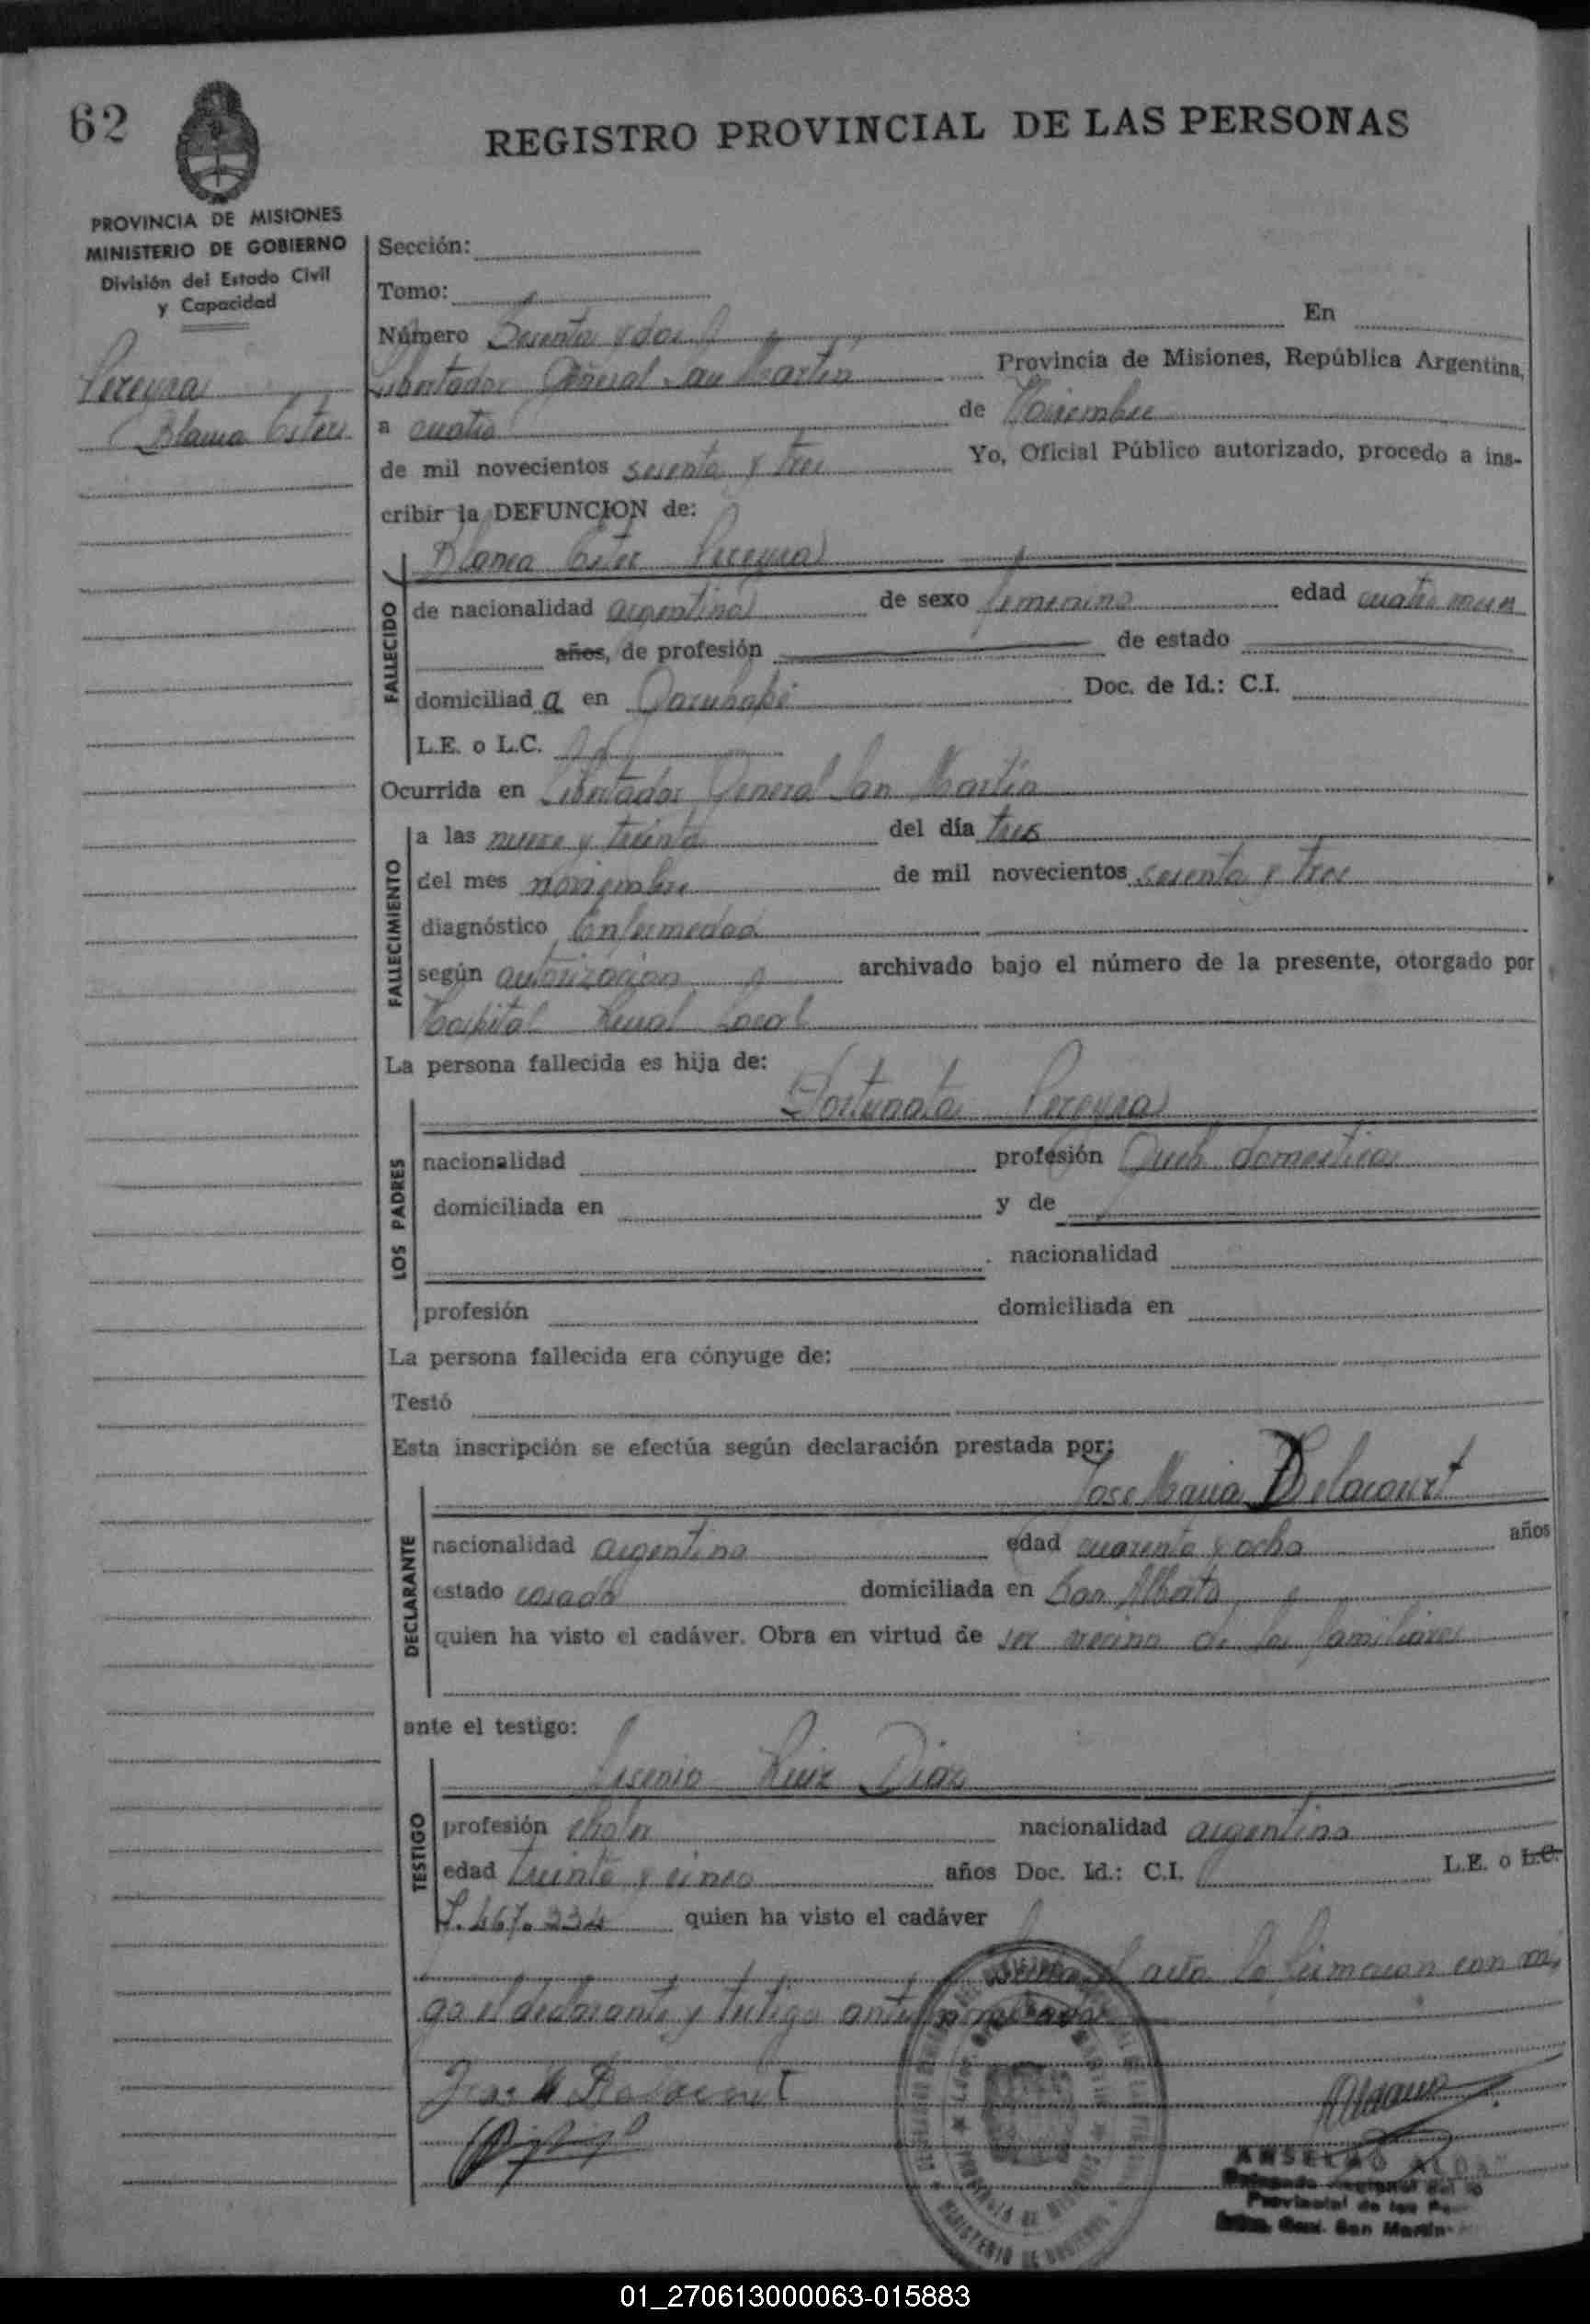 62
REGISTRO PROVINCIAL DE LAS PERSONAS
PROVINCIA DE MISIONES
MINISTERIO DE GOBIERNO
División del Estado Civil
y Capacidad
Pereyra
Blanca Ester
Sección:
Tomo:
Número Sesenta y dos En
Libertador General San Martín Provincia de Misiones, República Argentina,
a cuatro de Noviembre
de mil novecientos sesenta y tres Yo, Oficial Público autorizado, procedo a ins-
cribir la DEFUNCION de:
Blanca Ester Pereyra
FALLECIDO
de nacionalidad argentina de sexo femenino edad cuatro meses
años, de profesión de estado
domiciliad a en Garuhapé Doc. de Id.: C.I.
L.E. o L.C.
Ocurrida en Libertador General San Martín
FALLECIMIENTO
a las nueve y treinta del día tres
del mes noviembre de mil novecientos sesenta y tres
diagnóstico Enfermedad
según autorización archivado bajo el número de la presente, otorgado por
Hospital Rural Local
La persona fallecida es hija de:
Fortunata Pereyra
LOS PADRES
nacionalidad profesión Queh. domesticos
domiciliada en y de
nacionalidad
profesión domiciliada en
La persona fallecida era cónyuge de:
Testó
Esta inscripción se efectúa según declaración prestada por:
Jose Maria Delacourt
DECLARANTE
nacionalidad argentino edad cuarenta y ocho años
estado casado domiciliada en San Alberto
quien ha visto el cadáver. Obra en virtud de ser vecino de los familiares
ante el testigo:
Ruiz Diaz
TESTIGO
profesión chofer nacionalidad argentino
edad treinta y cinco años Doc. Id.: C.I. L.E. o L.C.
quien ha visto el cadáver
acta la firmaran con mi
go el declarante y testigo
MINISTERIO DE GOBIERNO
PROVINCIA DE MISIONES
ANSELMO
San Martín
01_270613000063-015883